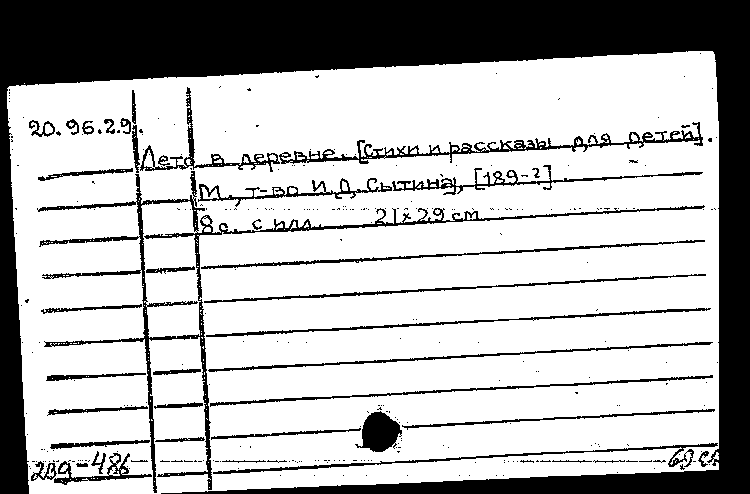 20.96.2.9.
Лето в деревне. [Стихи и рассказы для детей].
М., т-во И.Д. Сытина, [189-?]
8 с. с илл. 21x29 см
239-486